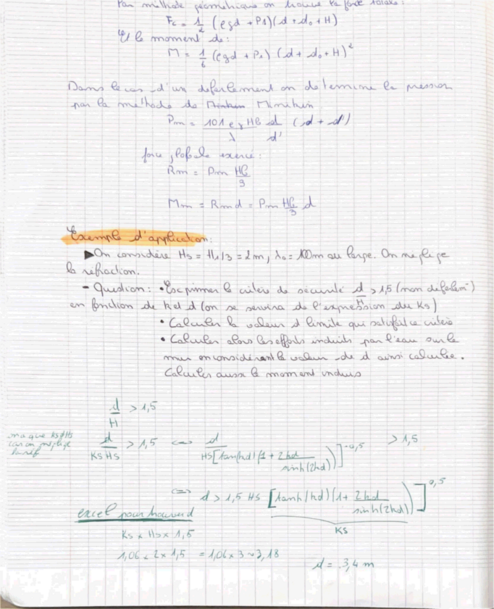 Par méthode géométrique on trouve la force totale:
Fc = 1/2 (ρgd + P1)(d + do + H)
Et le moment de:
M = 1/6 (ρgd + Po) (d + do + H)²
Dans le cas d'un déferlement on détermine la pression
par la méthode de Minikin
Pm = 101 ρg Hb/λ d/d' (d + d')
force exercé:
Rm = Pm Hb/3
Mm = Rm d = Pm Hb/3 d
Exemple d'application:
▶ On considère Hs = H1/3 = 2m, λo = 100m au large. On néglige
la réfraction.
- Question: • Exprimer le critère de sécurité d/H > 1,5 (non déferlem^t)
en fonction de k et d (on se servira de l'expression du Ks)
• Calculer la valeur d limite qui satisfait ce critère
• Calculer alors les efforts induits par l'eau sur le
mur en considérant la valeur de d ainsi calculée.
Calculer aussi le moment induit
d/H > 1,5
d/(Ks Hs) > 1,5 ⟺ d/(Hs[tanh(kd)(1 + 2kd/sinh(2kd))]^-0,5) > 1,5
⟺ d > 1,5 Hs [tanh(kd)(1 + 2kd/sinh(2kd))]^-0,5
Ks
excel pour trouver d
Ks x Hs x 1,5
1,06 x 2 x 1,5 = 1,06 x 3 = 3,18
d = 3,4 m